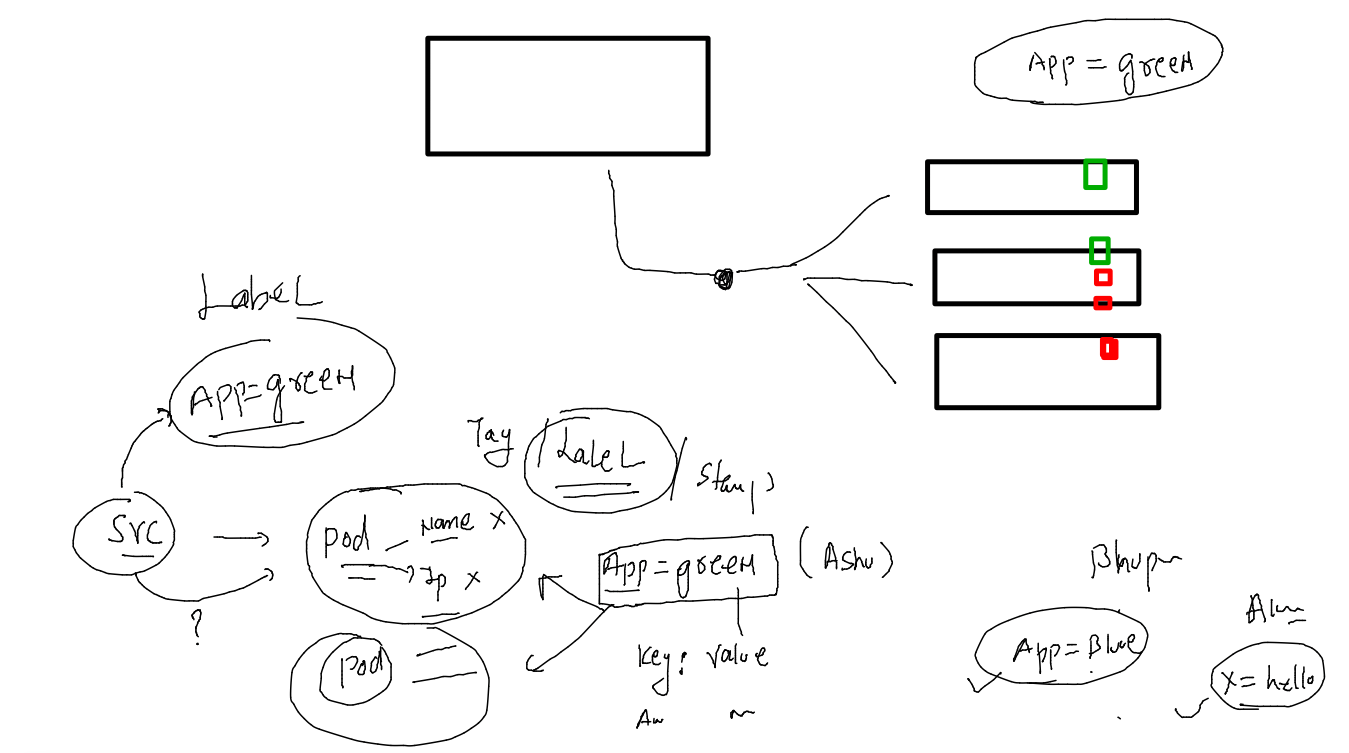 App = green
Label
App=green
Tag / Label / Stamp
Src
Pod
Name x
Ip x
App = green (Ashu)
?
Pod
Key: value
App = Blue
x = hello